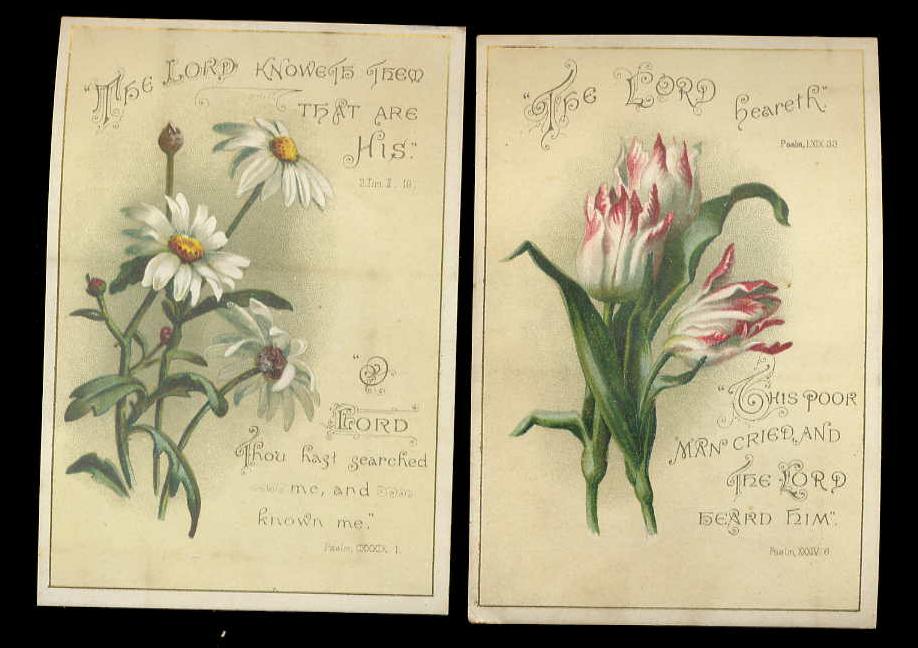 "The LORD KNOWETH THEM
THAT ARE
HIS."
2.Tim. II. 19.
"O
LORD
Thou hast searched
me, and
known me."
Psalm, CXXXIX. 1.
"The LORD heareth"
Psalm, LXIX. 33.
"THIS POOR
MAN CRIED, AND
THE LORD
HEARD HIM".
Psalm, XXXIV. 6